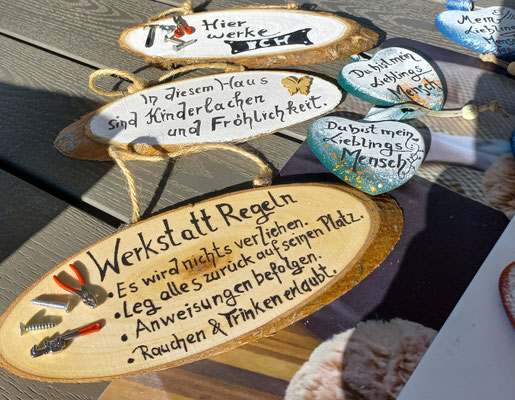 Hier
werke
ICH
In diesem Haus
sind Kinderlachen
und Fröhlichkeit.
Du bist mein
Lieblings
Mensch
Du bist mein
Lieblings
Mensch
Mein
Lieblings
Mensch
Werkstatt Regeln
• Es wird nichts verziehen.
• Leg alles zurück auf seinen Platz.
• Anweisungen befolgen.
• Rauchen & Trinken erlaubt.